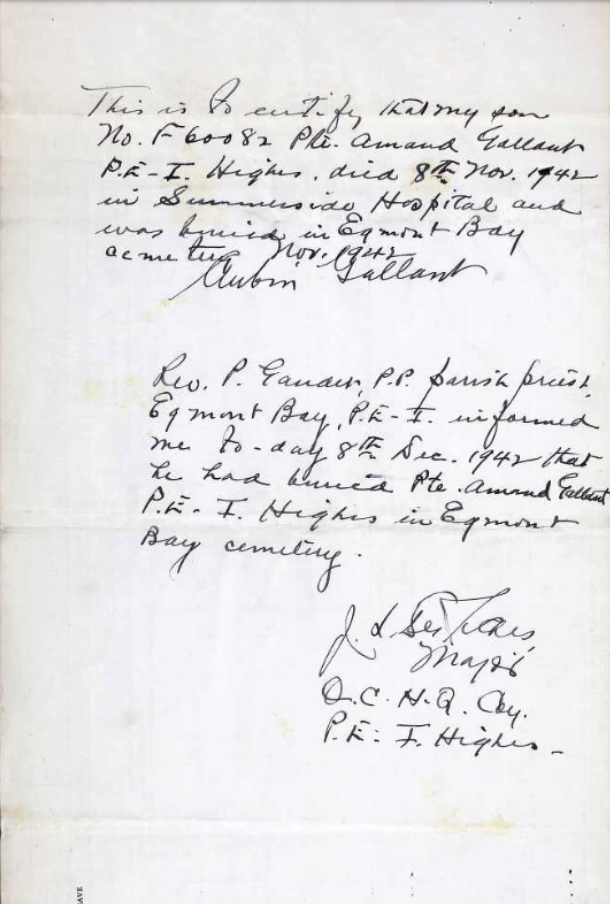 This is to certify that my son
No. F60082 Pte. Amand Gallant
P.E-I. Highrs. died 8th Nov. 1942
in Summerside Hospital and
was buried in Egmont Bay
cemetery Nov. 1942
Aubin Gallant
Rev. P. Gaudet, P.P. parish priest
Egmont Bay, P.E-I. informed
me to-day 8th Dec. 1942 that
he had buried Pte. Amand Gallant
P.E.-I. Highrs in Egmont
Bay cemetery.
J. L.
Major
O.C. H.Q. Coy.
P.E.-I. Highrs.
AVE